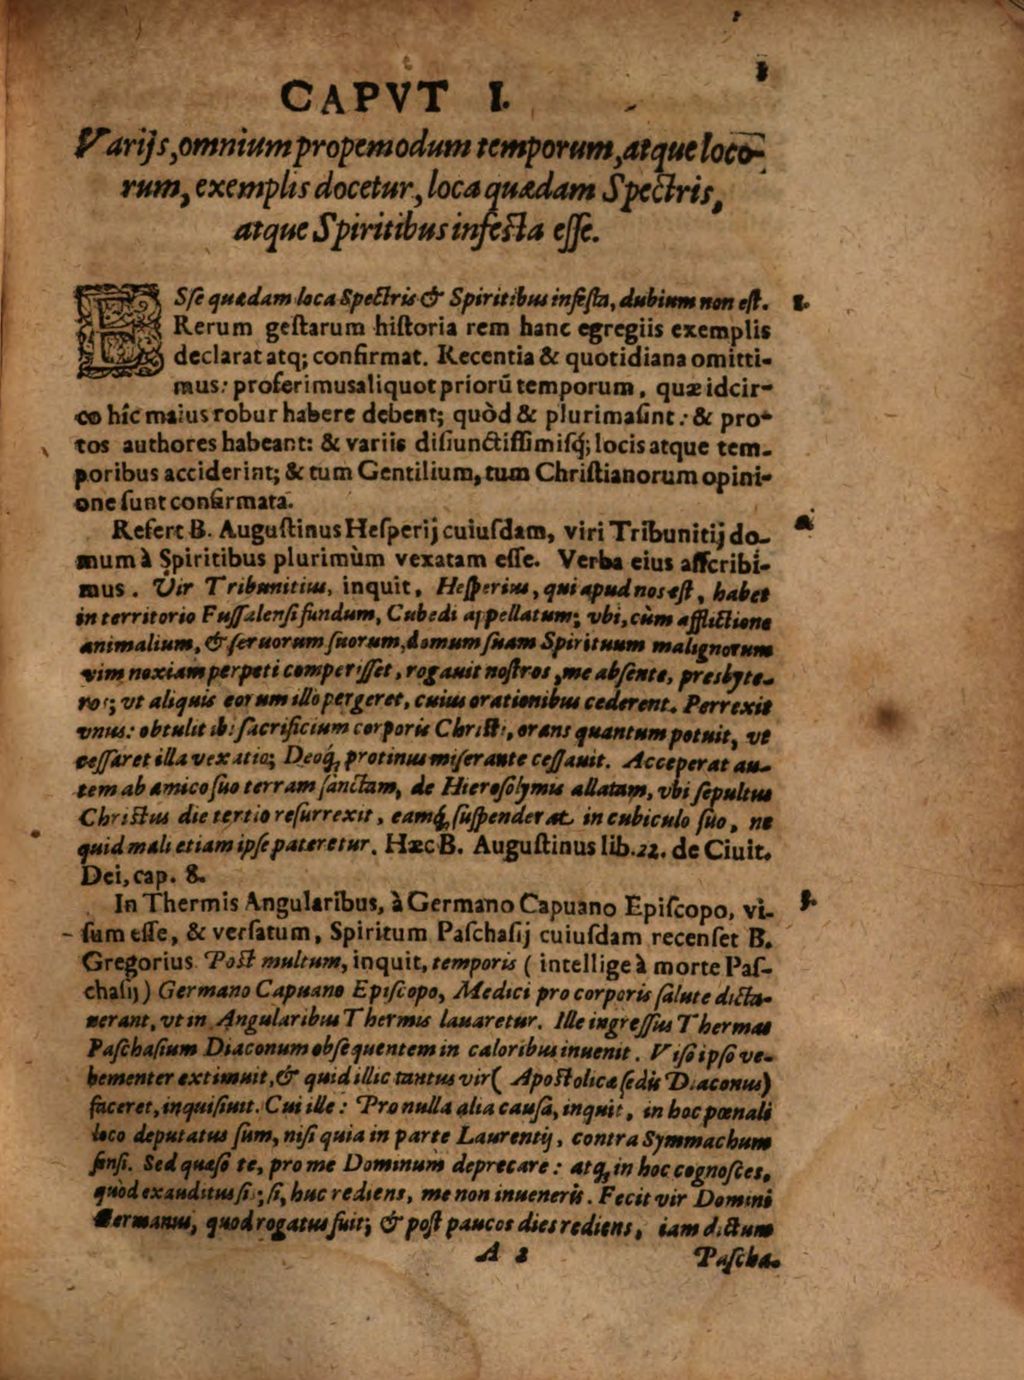 3
CAPVT I.
Varijs, omnium propemodum temporum, atque loco-
rum, exemplis docetur, loca quædam Spectris,
atque Spiritibus infesta esse.
ESſe quædam loca Spectris & Spiritibus infeſta, dubium non eſt. 1.
Rerum geſtarum hiſtoria rem hanc egregiis exemplis
declarat atq; confirmat. Recentia & quotidiana omitti-
mus: proferimus aliquot priorū temporum, quæ idcir-
co hîc maius robur habere debent; quòd & plurima ſint: & pro-
tos authores habeant: & variis diſiunctiſſimiſq́; locis atque tem-
poribus acciderint; & tum Gentilium, tum Chriſtianorum opini-
one ſunt confirmata.
Refert B. Auguſtinus Heſperij cuiuſdam, viri Tribunitij do- 2.
mum à Spiritibus plurimùm vexatam eſſe. Verba eius aſſcribi-
mus. Vir Tribunitius, inquit, Heſperius, qui apud nos eſt, habet
in territorio Fuſſalenſi fundum, Cubedi appellatum; vbi, cùm afflictione
animalium, & ſeruorum ſuorum, domum ſuam Spirituum malignorum
vim noxiam perpeti comperiſſet, rogauit noſtros, me abſente, presbyte-
ros; vt aliquis eorum illo pergeret, cuius orationibus cederent. Perrexit
vnus: obtulit ibi ſacrificium corporis Chriſti, orans quantum potuit, vt
ceſſaret illa vexatio; Deoq́, protinus miſerante ceſſauit. Acceperat au-
tem ab amico ſuo terram ſanctam, de Hieroſolymis allatam, vbi ſepultus
Chriſtus die tertio reſurrexit, eamq́, ſuſpenderat in cubiculo ſuo, ne
quid mali etiam ipſe pateretur. Hæc B. Auguſtinus lib. 22. de Ciuit.
Dei, cap. 8.
In Thermis Angularibus, à Germano Capuano Epiſcopo, vi- 3.
ſum eſſe, & verſatum, Spiritum Paſchaſij cuiuſdam recenſet B.
Gregorius. Poſt multum, inquit, temporis ( intellige à morte Paſ-
chaſij ) Germano Capuano Epiſcopo, Medici pro corporis ſalute dicta-
uerant, vt in Angularibus Thermis lauaretur. Ille ingreſſus Thermas
Paſchaſium Diaconum obſequentem in caloribus inuenit. Viſo ipſo ve-
hementer extimuit, & quid illic tantus vir ( Apoſtolicæ ſedis Diaconus)
faceret, inquiſiuit. Cui ille: Pro nulla alia cauſa, inquit, in hoc pœnali
loco deputatus ſum, niſi quia in parte Laurentij, contra Symmachum
ſenſi. Sed quæſo te, pro me Dominum deprecare: atq́, in hoc cognoſces,
quòd exauditus ſis; ſi, huc rediens, me non inueneris. Fecit vir Domini
Germanus, quod rogatus fuit; & poſt paucos dies rediens, iam dictum
A 2 Paſcha-